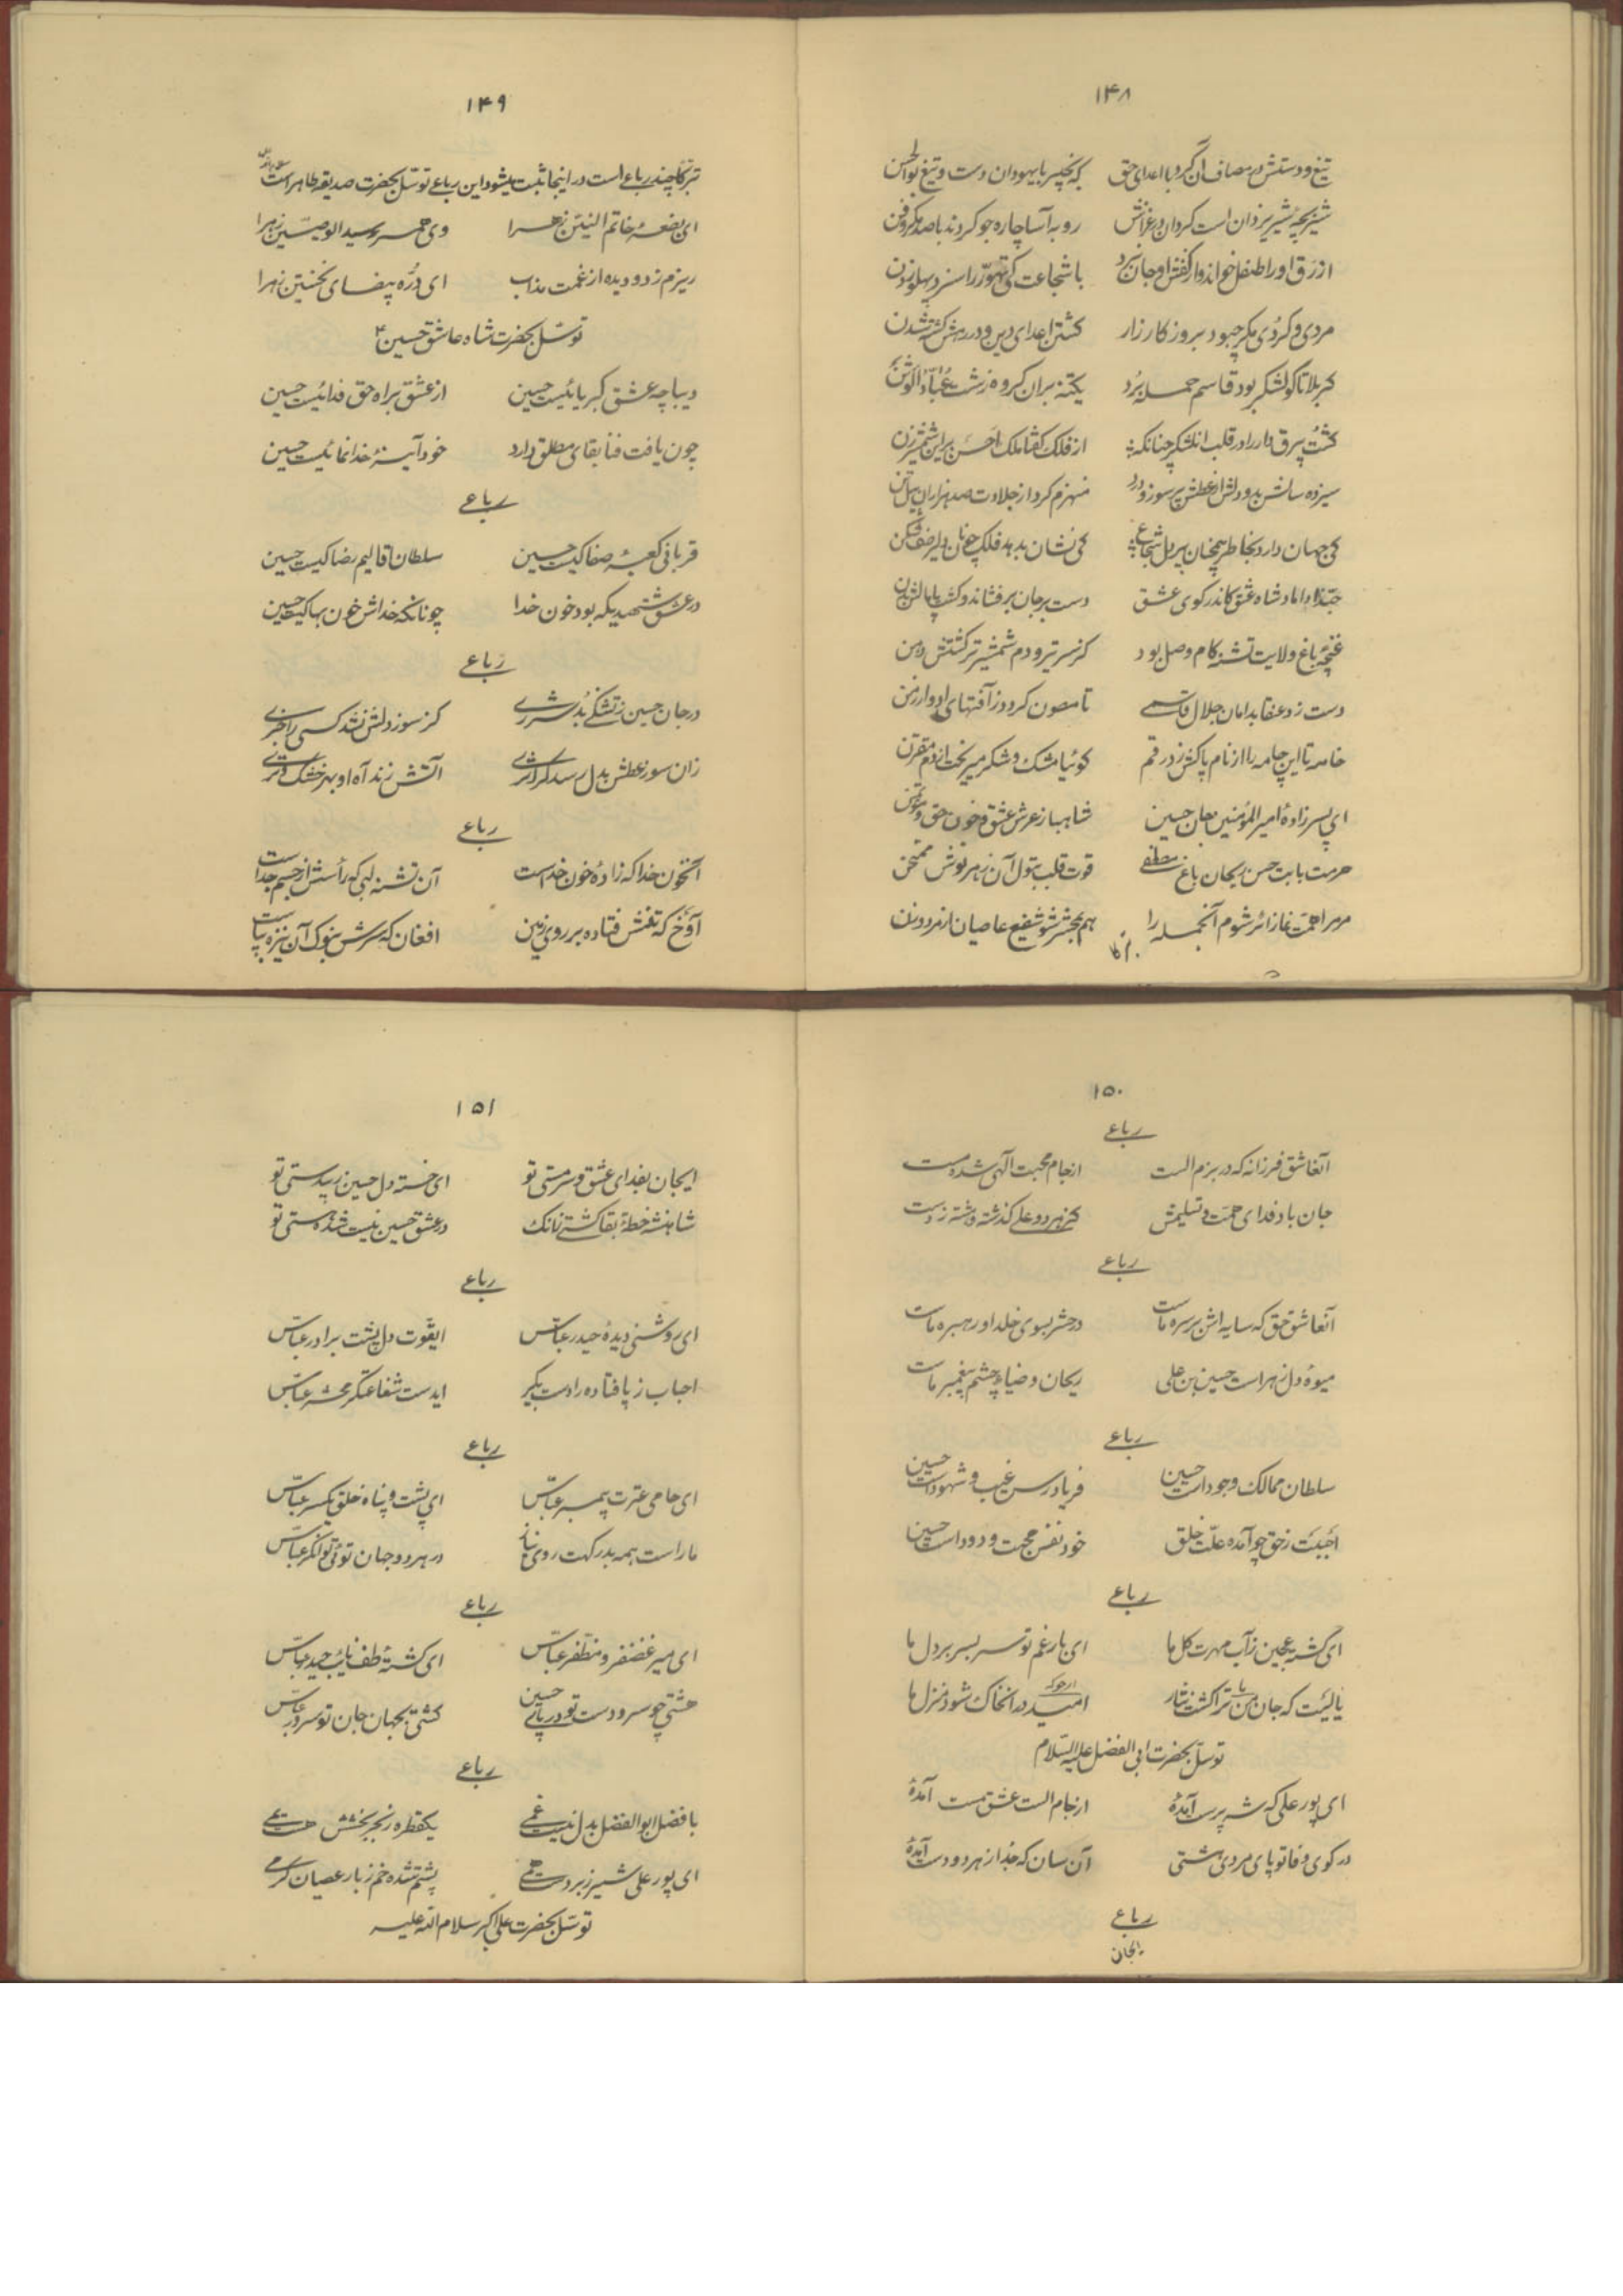 ۱۴۸
تیغ و دستش در مصاف آن کرد با اعدای حق که نخیبر با یهودان دست و تیغ بوالحسن
شیر بچه شیر یزدان است کردان در غزاش روبه آسا چاره جو کردند با صد مکر و فن
ازرق او را طفل خواند و از کفش او جان نبرد با شجاعت کی تهوّر را سزد پهلو زدن
مردی و کُردی مکر چبود بروز کارزار کشتن اعدای دین و در رهش کشته شدن
کربلا تا کو لشکر بود قاسم حمله بُرد یکتنه بران کروه زشت عُبّادُ الوَثَن
کشت بیرق دار را در قلب لشکر چنانکه از فلک گفتا ملک احسن براین شمشیرزن
سیزده سالش بد و دلش از عطش پر سوز و درد منهزم کرد از جلادت صد هزاران پیل تن
کی جهان دارد بخاطر همچنان پر دل شجاع کی نشان بدهد فلک چونان دلیر صف شکن
حبّذا داماد شاه عشق کاندر کوی عشق دست بر جان برفشاند و کشت پامالش بدن
غنچهٔ باغ ولایت تشنه کام وصل بود کز سر تیر و دم شمشیر تر کشتش دهن
دست زد عنقا بدامان جلال قاسمی تا مصون کردد ز آفتهای ادوار زمن
خامه تا این چامه را از نام پاکش زد رقم کوئیا مشک و شکر میریخت از دم مقترن
ای پسر زادهٔ امیر المؤمنین بجان حسین شاهباز عرش عشق و خون حق و مؤتمن
حرمت بابت حسن ریحان باغ مصطفی قوت قلب بتول آن زهر نوش ممتحن
مر مرا همت نما زائر شوم آنجمله را هم بمحشر شو شفیع عاصیان از مرد و زن
۱۴۹
تبرکا چند رباعی است در اینجا ثبت میشود این رباعی توسّل بحضرت صدیقه طاهره است
ای بضعهٔ خاتم النبیین زهرا وی همسر سید الوصیّین زهرا
ریزم ز دو دیده از غمت مذاب ای دُرّه بیضای نخستین زهرا
توسّل بحضرت شاه عاشق حسین ع
دیباچه عشق کبریائیست حسین از عشق براه حق فدائیست حسین
چون یافت فنا بقای مطلق دارد خود آینهٔ خدا نمائیست حسین
رباعی
قربانی کعبهٔ صفا کیست حسین سلطان اقالیم رضا کیست حسین
در عشق شهیدیکه بود خون خدا چونانکه خداش خون بها کیست حسین
رباعی
در جان حسین ز تشنگی بُد شرری کز سوز دلش نشد کسی را خبری
زان سوز عطش بدل رسد کر اثری آتش زند آه او بهر خشک و تری
رباعی
آنخون خدا که زادهٔ خون خداست آن تشنه لبی که رأسش از جسم جداست
آوخ که تنش فتاده بر روی زمین افغان که سرش بنوک آن نیزه بپاست
۱۵۰
رباعی
آنعاشق فرزانه که در بزم الست از جام محبت آلهی شده مست
جان باد فدای همّت و تسلیمش کز هر دو علی گذشته و شسته ز دست
رباعی
آنعاشق حق که سایه اش بر سر ماست در حشر بسوی خلد او رهبر ماست
میوهٔ دل زهراست حسین بن علی ریحان و ضیاء چشم پیغمبر ماست
رباعی
سلطان ممالک وجود است حسین فریاد رس غیب و شهود است حسین
اَحبَبتُ ز حق چو آمده علّت خلق خود نفس محبت و دود است حسین
رباعی
ای کشته عجین ز آب مهرت کل ما ای بار غم تو سر بسر بر دل ما
یا لَیتَ که جان من ترا کشت نثار امید در آنخاک شود منزل ما
توسّل بحضرت ابی الفضل علیه السّلام
ای پور علی که شه پرست آمدهٔ از جام الست عشق مست آمدهٔ
در کوی وفا تو پای مردی هشتی آن سان که جدا ز هر دو دست آمدهٔ
رباعی
ایجان
۱۵۱
ایجان بفدای عشق و سرمستی تو ای خسته دل حسین ز بیدستی تو
شاهنشه خطهٔ بقا کشتی زانک در عشق حسین نیست شد هستی تو
رباعی
ای روشنی دیدهٔ حیدر عباس ایقوت دل پشت برادر عباس
احباب ز پا فتاده را دست بگیر ایدست شفاعتگر محشر عباس
رباعی
ای حامی عترت پیمبر عباس ای پشت و پناه خلق یکسر عباس
ما راست همه بدرکهت روی نیاز در هر دو جهان توئی توانگر عباس
رباعی
ای میر غضنفر و مظفر عباس ای کشتهٔ طف نایب حیدر عباس
هشتی چو سر و دست تو در پای حسین کشتی بجهان جان تو سرور عباس
رباعی
با فضل ابوالفضل بدل نیست غمی یکقطره ز بحر بخشش هست یمی
ای پور علی شیر زبردست همی پشتم شده خم ز بار عصیان کرمی
توسّل بحضرت علی اکبر سلام الله علیه